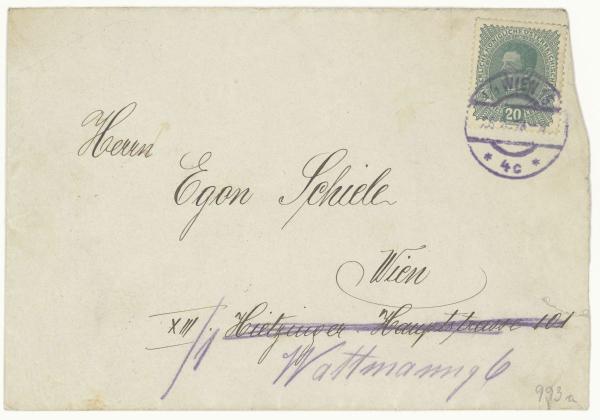 WIEN
20
* 4c *
Herrn
Egon Schiele
Wien
XIII. Hietzinger Hauptstrasse 101
/1 Wattmanng 6
993a